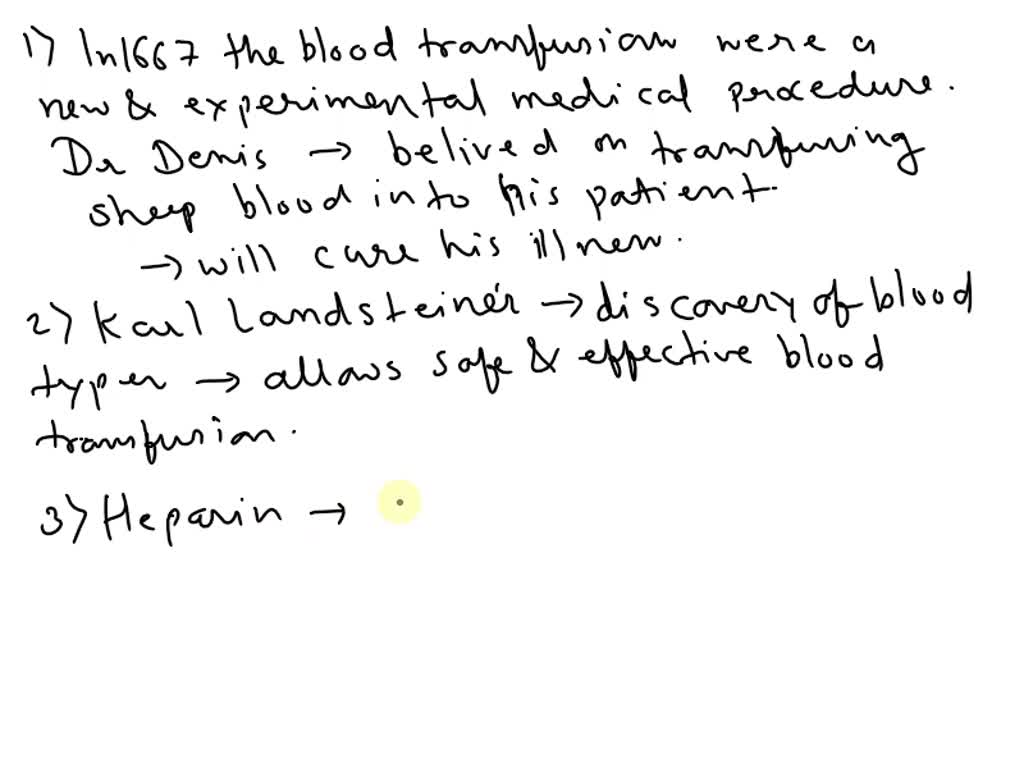 1) In1667 the blood transfusion were a
new & experimental medical procedure.
Dr Denis → belived on transfusing
sheep blood into his patient.
→ will cure his illness.
2) Karl Landsteiner's → discovery of blood
types → allows safe & effective blood
transfusion.
3) Heparin →